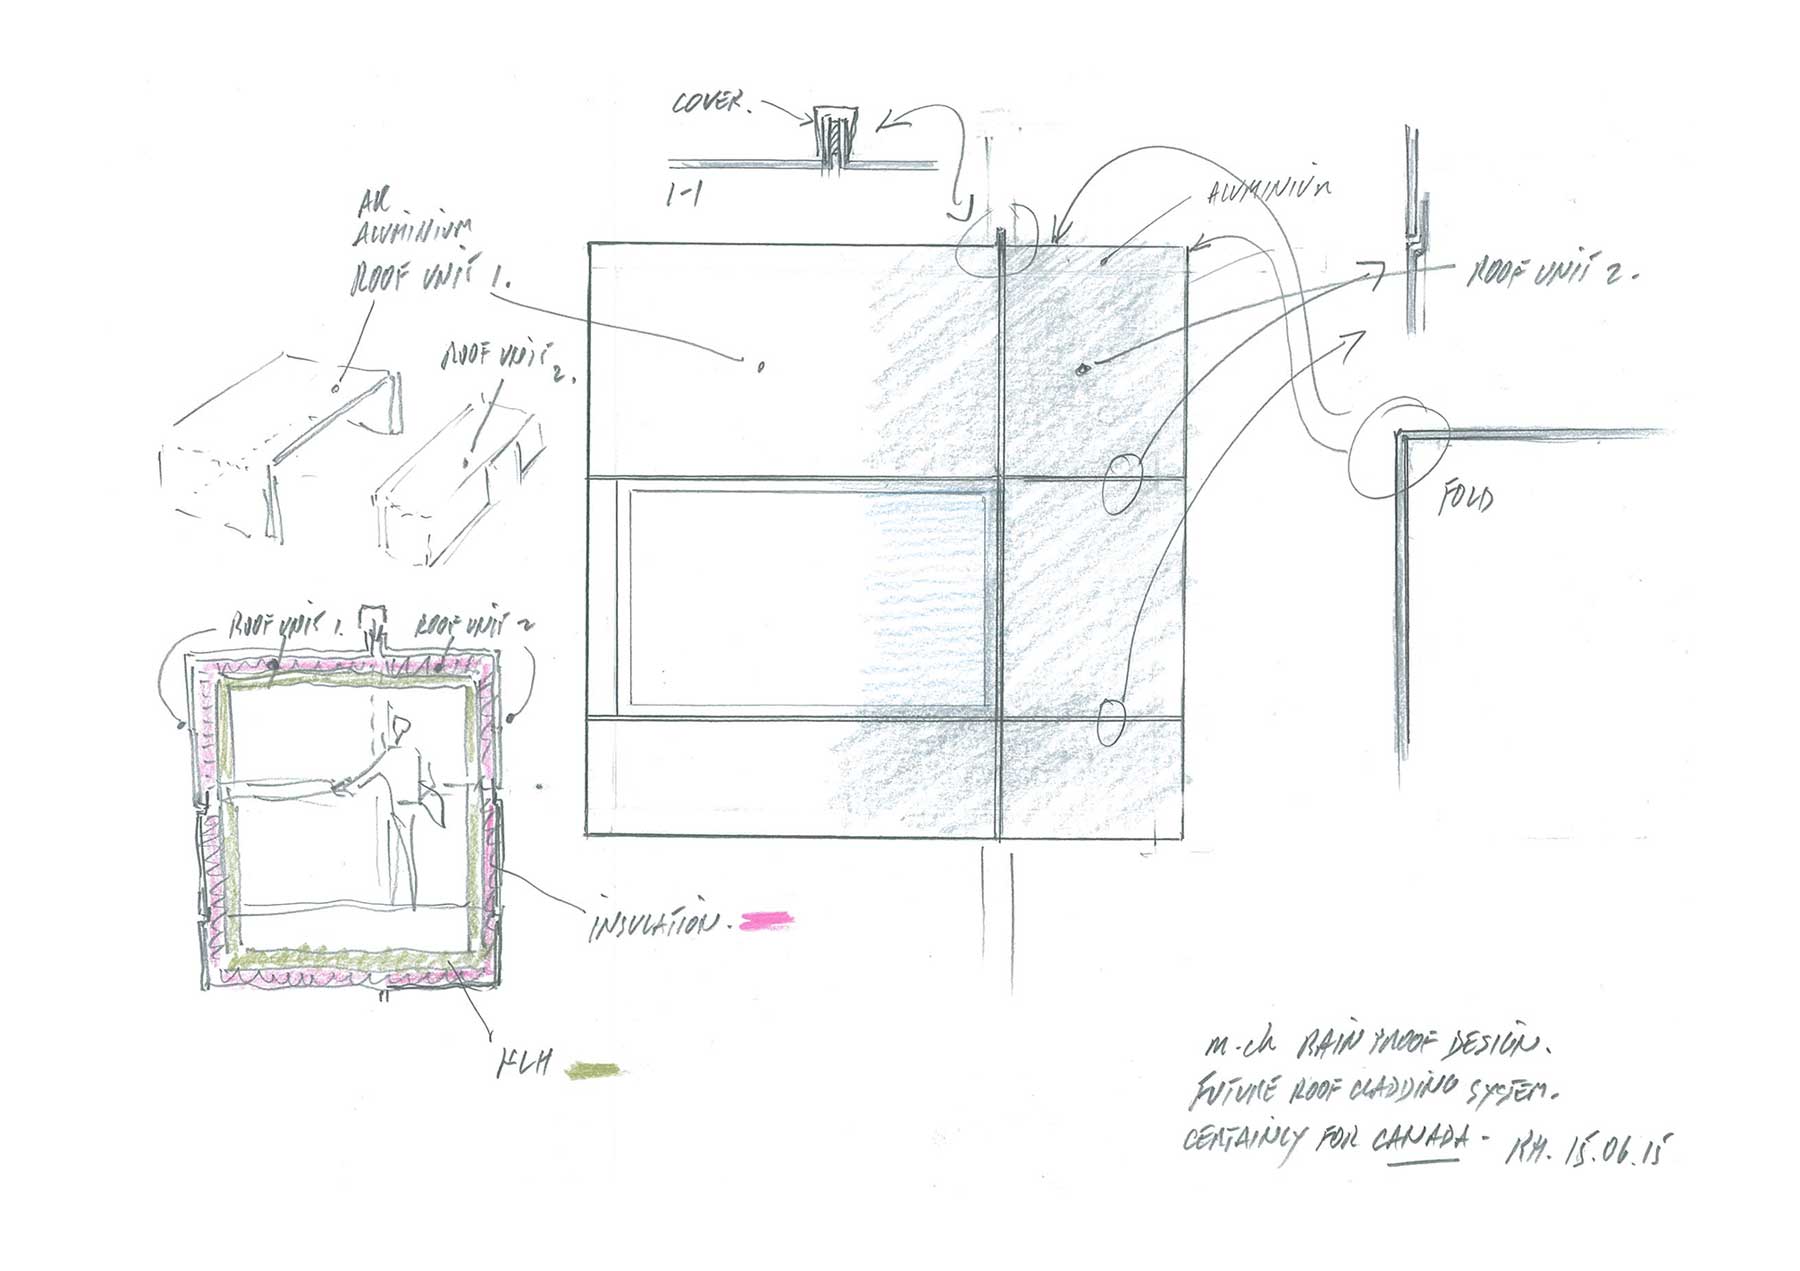 COVER.
1-1
ALUMINIUM
ALUMINIUM
ROOF UNIT 1.
ROOF UNIT 2.
ROOF UNIT
2.
FOLD
ROOF UNIT 1.
ROOF UNIT 2
INSULATION.
KLH
m-ch RAIN PROOF DESIGN.
FUTURE ROOF CLADDING SYSTEM.
CERTAINLY FOR CANADA - RH. 15.06.15